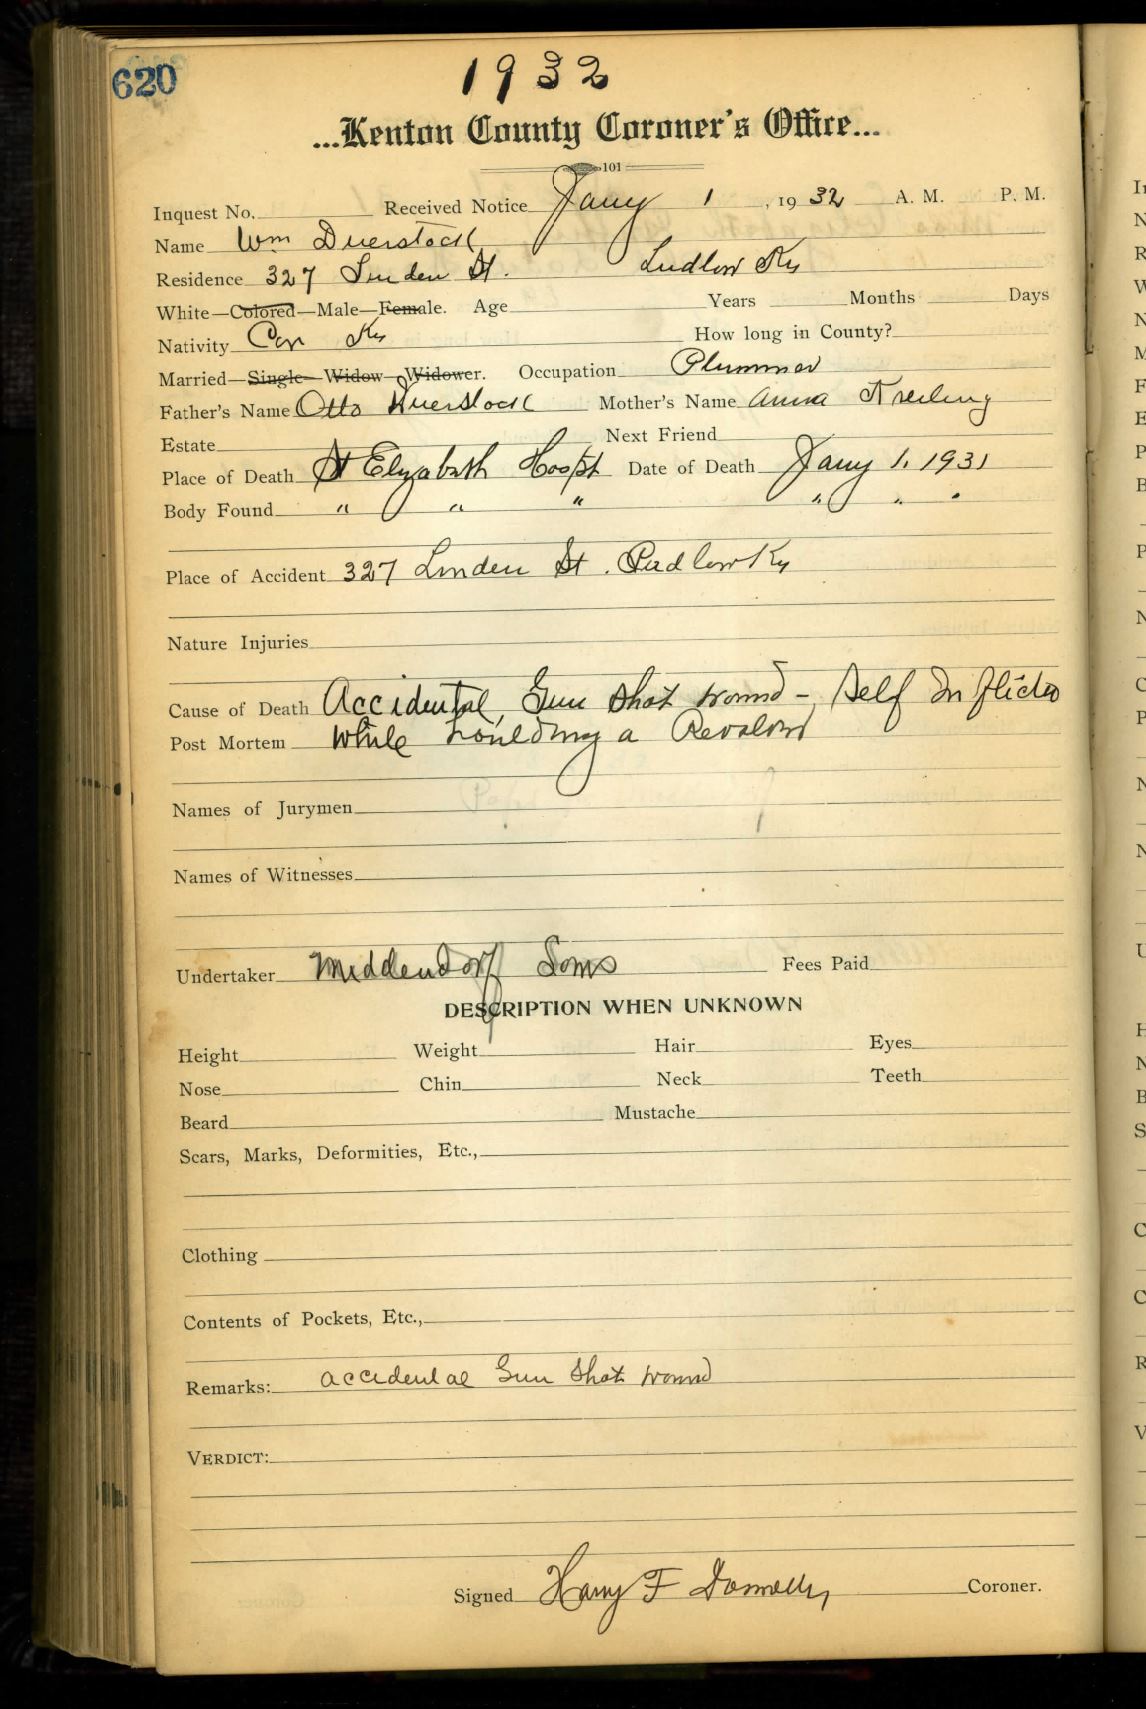 620
1932
...Kenton County Coroner's Office...
101
Inquest No. Received Notice Jany 1, 1932 A. M. P. M.
Name Wm Duerstock
Residence 327 Linden St. Ludlow Ky
White—Colored—Male—Female. Age Years Months Days
Nativity Cov Ky How long in County?
Married—Single—Widow—Widower. Occupation Plummer
Father's Name Otto Duerstock Mother's Name Anna
Estate Next Friend
Place of Death St Elyzabeth Hospt Date of Death Jany 1. 1931
Body Found " " " " " "
Place of Accident 327 Linden St. Ludlow Ky
Nature Injuries
Cause of Death Accidental, Gun Shot wound - Self Inflicted
Post Mortem While houlding a Revolver
Names of Jurymen
Names of Witnesses
Undertaker Middendorf Sons Fees Paid
DESCRIPTION WHEN UNKNOWN
Height Weight Hair Eyes
Nose Chin Neck Teeth
Beard Mustache
Scars, Marks, Deformities, Etc.,
Clothing
Contents of Pockets, Etc.,
Remarks: accidental Gun Shot wound
VERDICT:
Signed Harry F Donnelly Coroner.